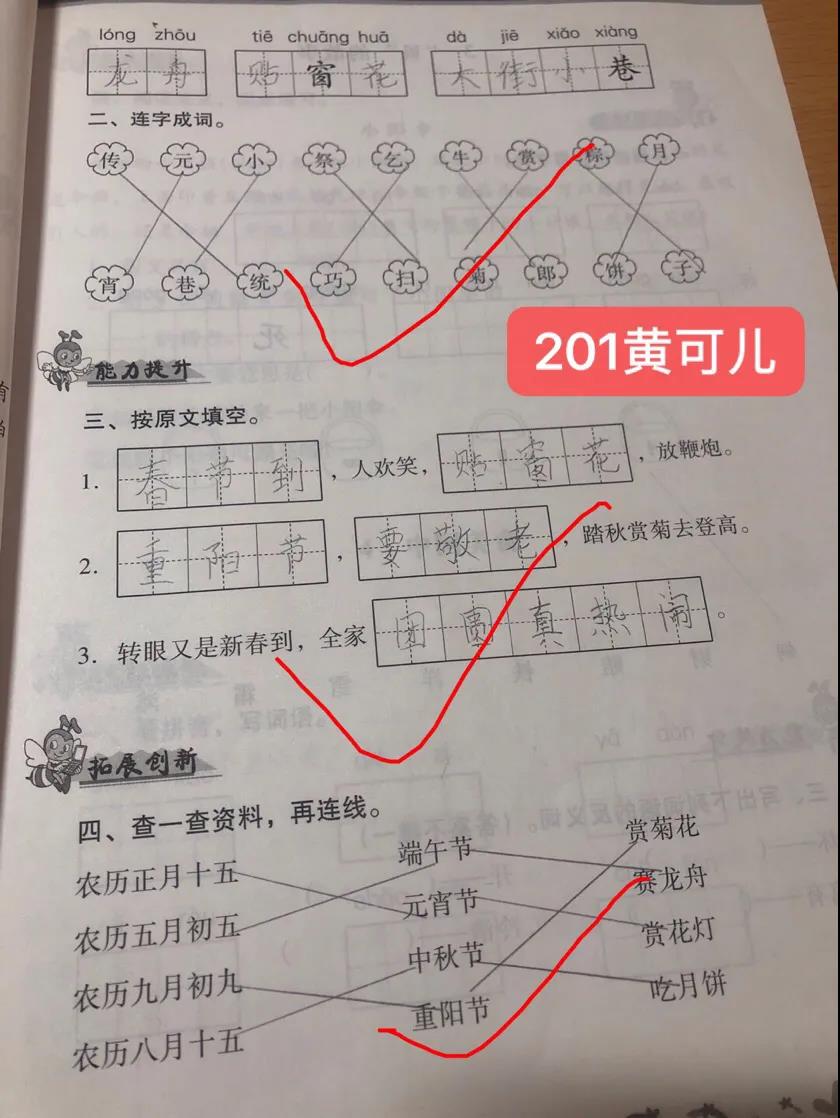 lóng zhōu tiē chuāng huā dà jiē xiǎo xiàng
龙舟 贴窗花 大街小巷
二、连字成词。
传 元 小 祭 乞 牛 赏 粽 月
宵 巷 统 巧 扫 菊 郎 饼 子
201黄可儿
能力提升
三、按原文填空。
1. 春节到，人欢笑，贴窗花，放鞭炮。
2. 重阳节，要敬老，踏秋赏菊去登高。
3. 转眼又是新春到，全家团圆真热闹。
拓展创新
四、查一查资料，再连线。
农历正月十五 端午节 赏菊花
农历五月初五 元宵节 赛龙舟
农历九月初九 中秋节 赏花灯
农历八月十五 重阳节 吃月饼